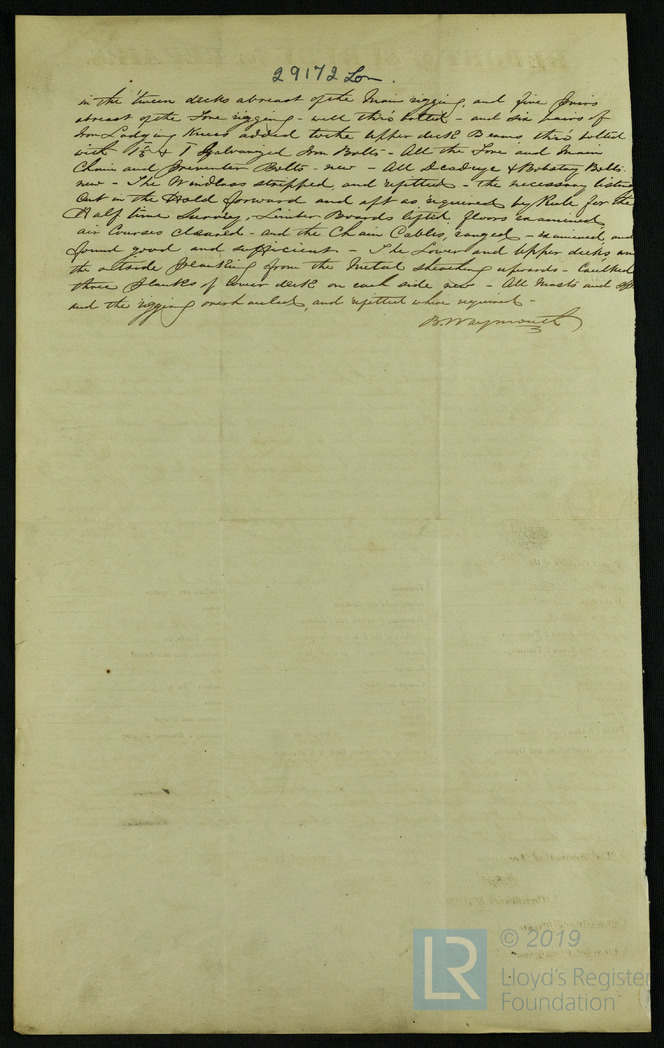 29172 Lon.
in the 'tween decks abreast of the Main rigging, and five pairs
abreast of the Fore rigging - well thro' bolted - and six pairs of
Iron Lodging Knees added to the Upper deck Beams, thro' bolted
with Galvanized Iron Bolts - All the Fore and Main
Chain and Preventer Bolts - new - All Deadeye & Bobstay Bolts
new - The Windlass stripped, and refitted - the necessary listing
Cut in the Hold forward and aft as required by Rule for the
Half time Survey, Limber Boards lifted, floors examined,
air Courses cleared - and the Chain Cables, ranged - examined, and
found good and sufficient - The Lower and Upper decks and
the outside Planking from the Metal sheathing upwards - Caulked
three Planks of lower deck on each side new - All Masts and
and the rigging overhauled, and refitted where required -
B. Waymouth
LR © 2019
Lloyd's Register
Foundation